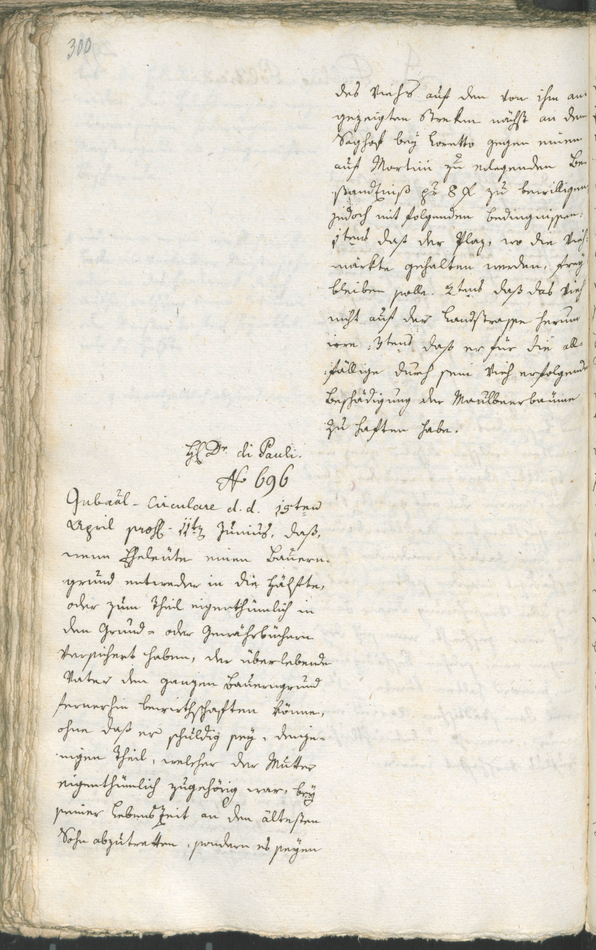 300
des Viehs auf den von ihm an-
gezeigten Streken nächst an dem
Saghof bey Loretto gegen einem
auf Martini zu erlegenden Be-
standtniß pr 8 f zu bewilligen
jedoch mit folgenden bedingnissen:
1tens daß der Plaz, wo die Vieh-
märkte gehalten werden, frey
bleiben solle. 2tens daß das Vieh
nicht auf der Landstrasse herum
irre. 3tens daß er für die all-
fällige durch sein Vieh erfolgende
Beschädigung der Maulbeerbäume
zu haften habe.
H Dr. di Pauli.
No 696
Gubaäl-Circulare d. d. 15ten
April pres. 11t Junius, daß,
wenn Eheleute einen Bauern-
grund entweder in die Hälfte,
oder zum Theil eigenthümlich in
den Grund- oder Gewährbüchern
versichert haben, der überlebende
Vater den ganzen Bauerngrund
fernerhin bewirthschaften könne,
ohne daß er schuldig sey, denje-
nigen Theil, welcher der Mutter
eigenthümlich zugehörig war, bey
seiner LebensZeit an den ältesten
Sohn abzutretten, sondern es seyen